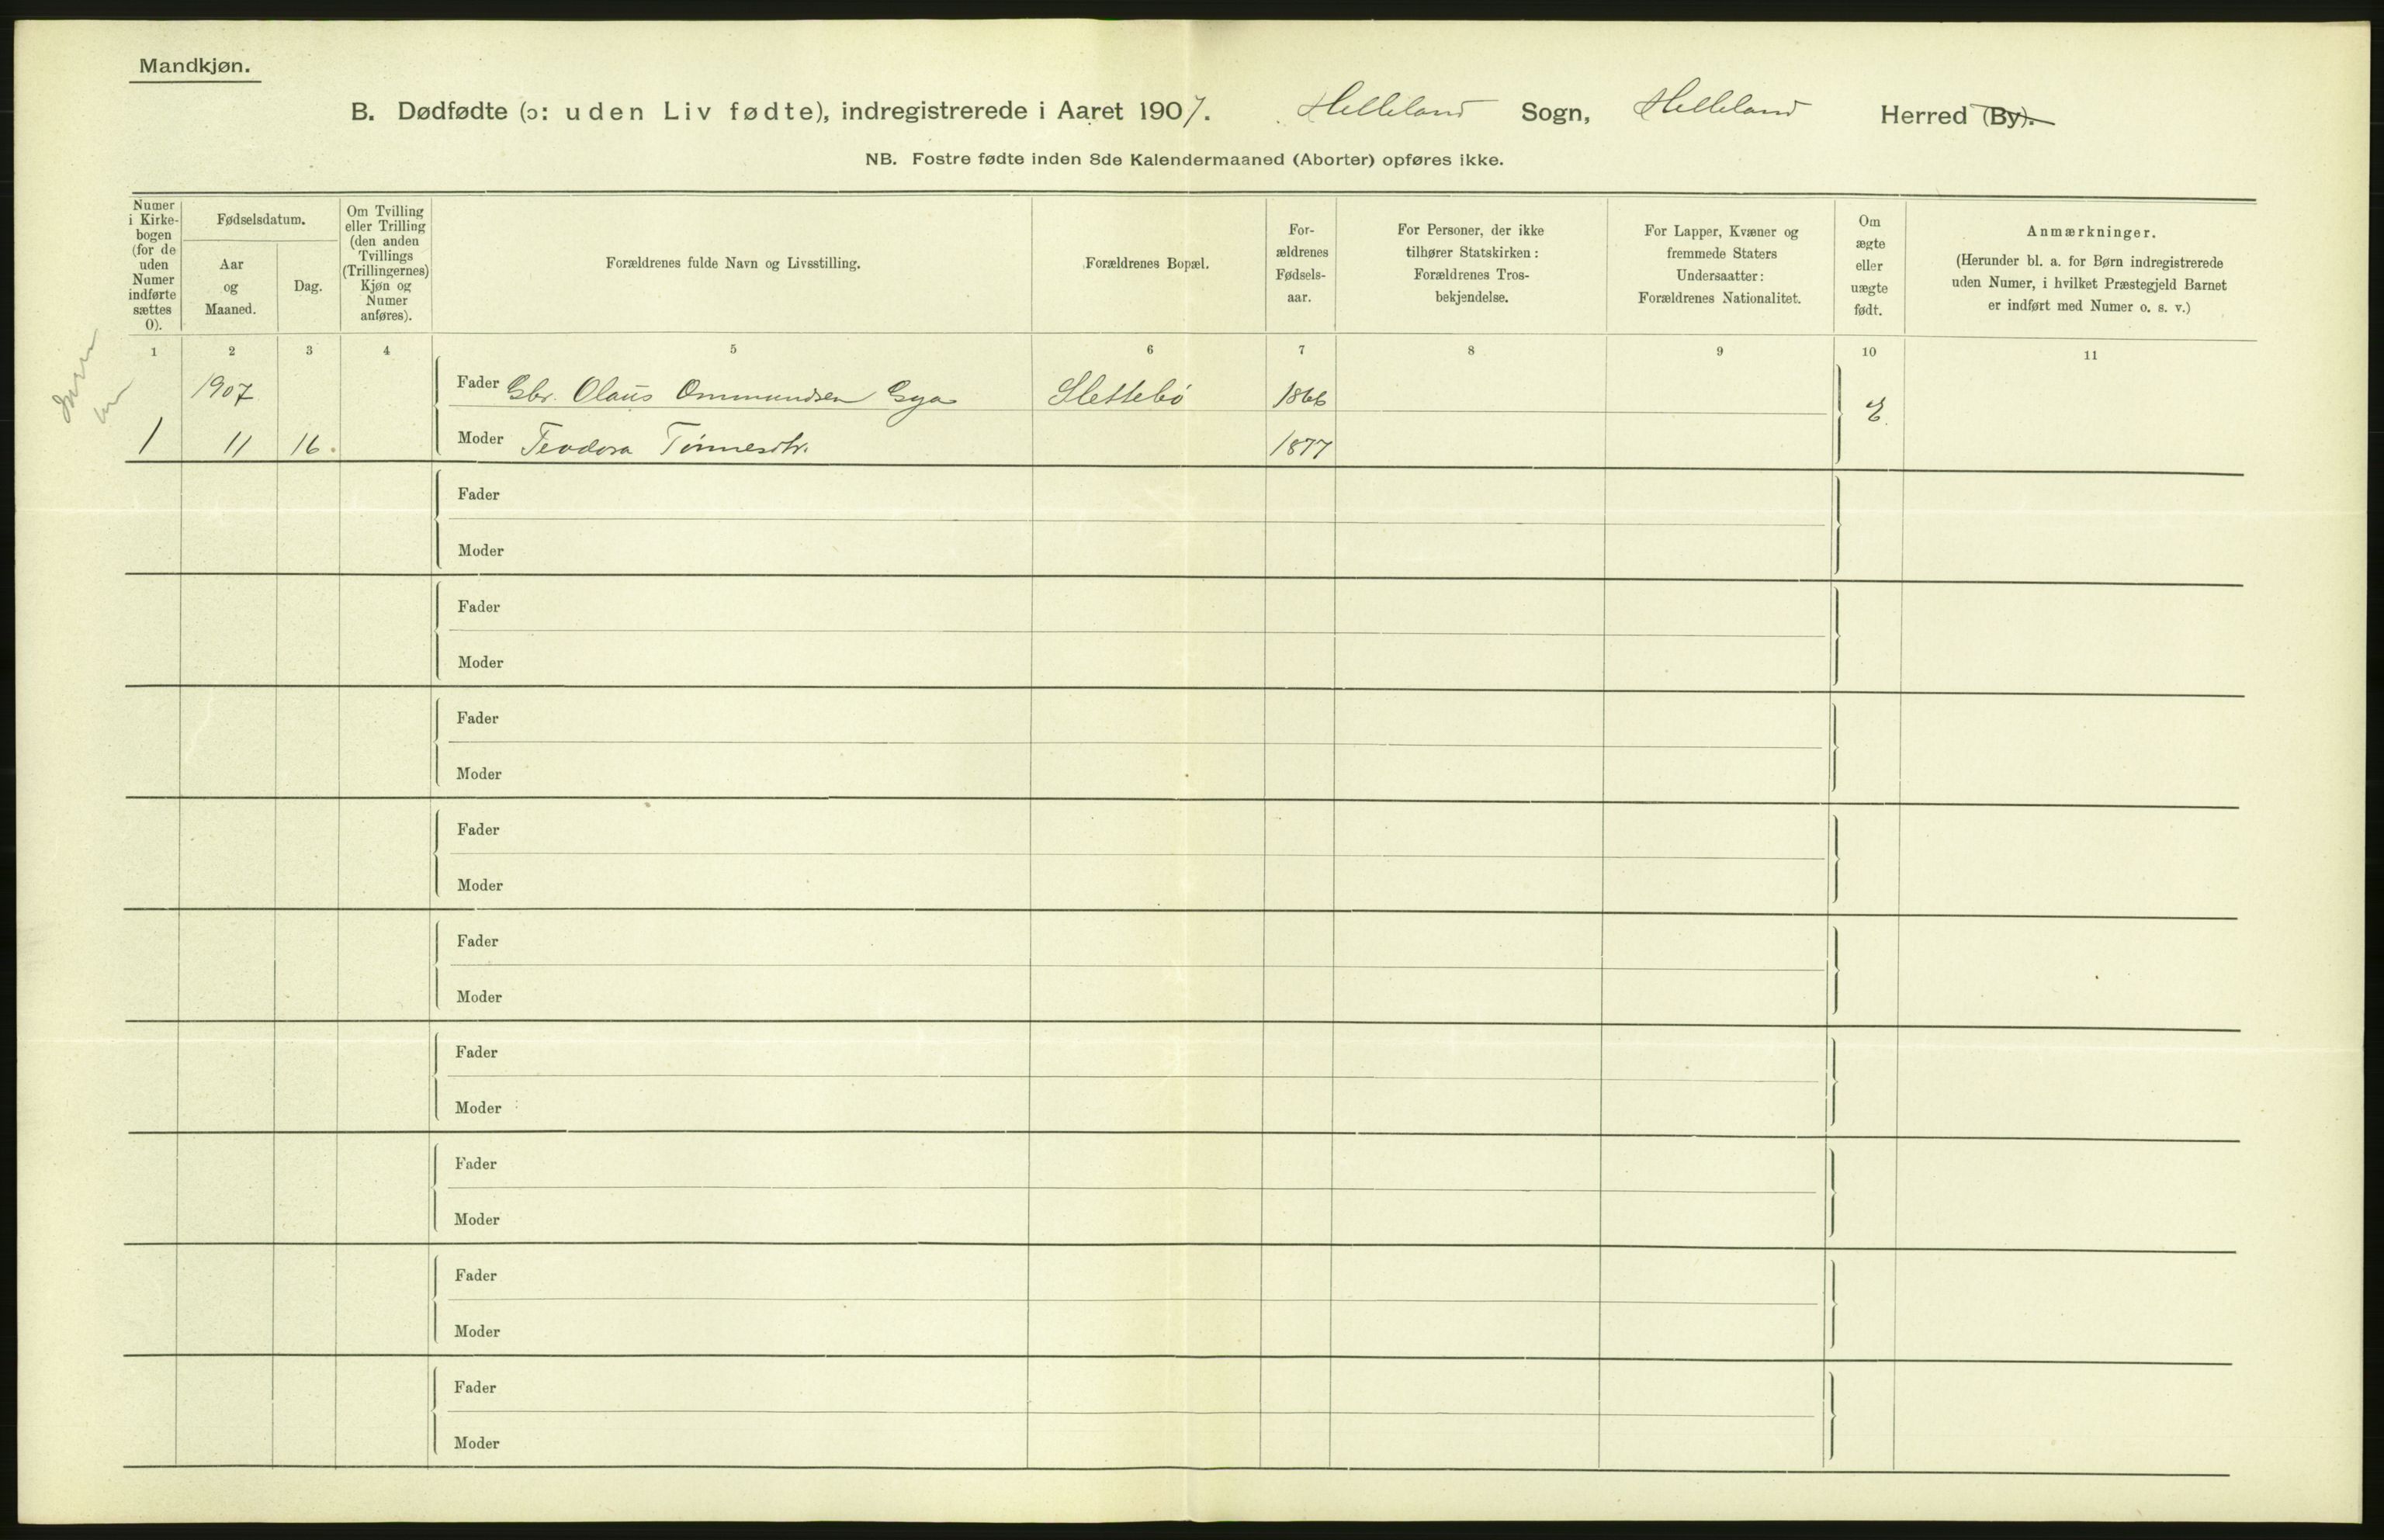 Mandkjøn.
B. Dødfødte (ɔ: uden Liv fødte), indregistrerede i Aaret 1907. Helleland Sogn, Helleland Herred (By).
NB. Fostre fødte inden 8de Kalendermaaned (Aborter) opføres ikke.
Numer
i Kirke-
bogen
(for de
uden
Numer
indførte
sættes
0).
Fødselsdatum.
Aar
og
Maaned.
Dag.
Om Tvilling
eller Trilling
(den anden
Tvillings
(Trillingernes)
Kjøn og
Numer
anføres).
Forældrenes fulde Navn og Livsstilling.
Forældrenes Bopæl.
For-
ældrenes
Fødsels-
aar.
For Personer, der ikke
tilhører Statskirken:
Forældrenes Tros-
bekjendelse.
For Lapper, Kvæner og
fremmede Staters
Undersaatter:
Forældrenes Nationalitet.
Om
ægte
eller
uægte
født.
Anmærkninger.
(Herunder bl. a. for Børn indregistrerede
uden Numer, i hvilket Præstegjeld Barnet
er indført med Numer o. s. v.)
1 2 3 4 5 6 7 8 9 10 11
1907 Fader Gbr. Olaus Ommundsen Gya Slettebø 1866 E.
1 11 16. Moder Teodora Tønnesdtr. 1877
Fader
Moder
Fader
Moder
Fader
Moder
Fader
Moder
Fader
Moder
Fader
Moder
Fader
Moder
Fader
Moder
Fader
Moder